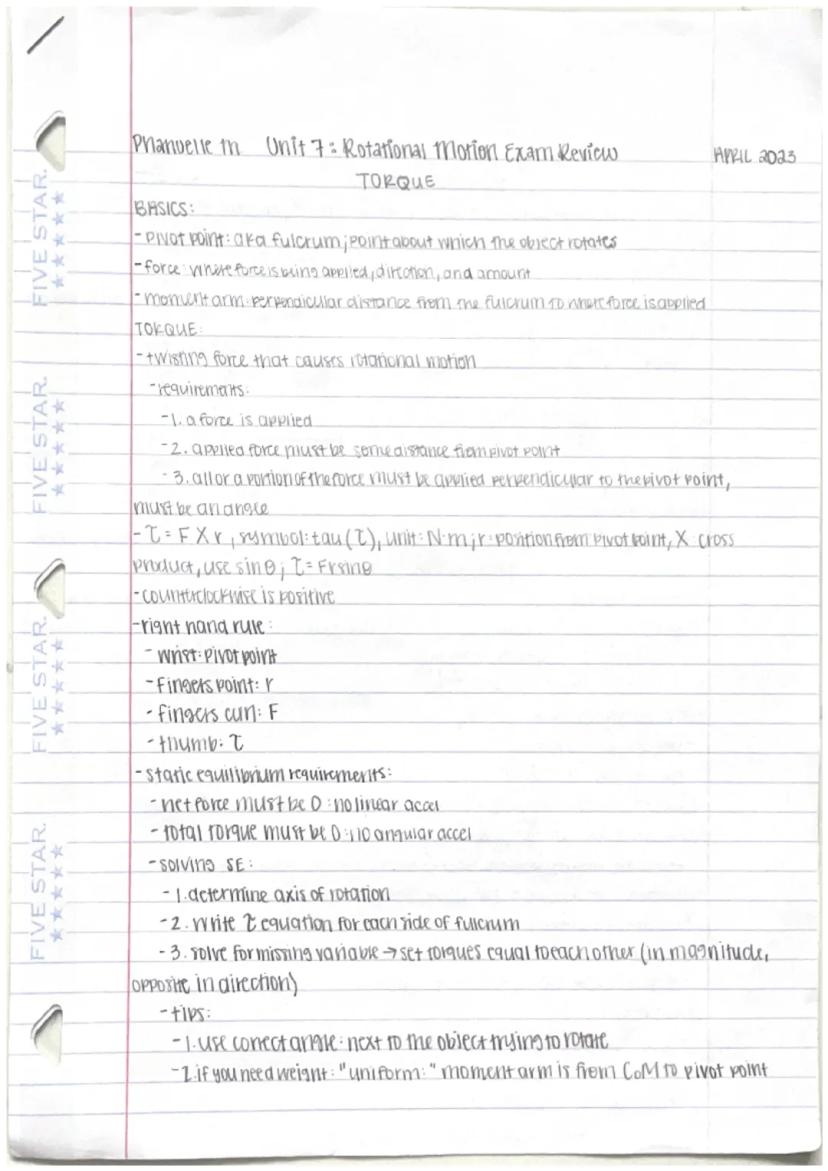 Phanuelle M Unit 7: Rotational Motion Exam Review APRIL 2023
TORQUE
BASICS:
- pivot point: aka fulcrum; point about which the object rotates
- force: where force is being applied, direction, and amount
- moment arm: perpendicular distance from the fulcrum to where force is applied
TORQUE:
- twisting force that causes rotational motion
- requirements:
- 1. a force is applied
- 2. applied force must be some distance from pivot point
- 3. all or a portion of the force must be applied perpendicular to the pivot point,
must be an angle
- τ = F X r, symbol: tau (τ), unit: N·m; r: position from pivot point, X: cross
product, use sin θ; τ = Frsinθ
- counterclockwise is positive
- right hand rule:
- wrist: pivot point
- fingers point: r
- fingers curl: F
- thumb: τ
- static equilibrium requirements:
- net force must be 0: no linear accel
- total torque must be 0: no angular accel
- solving SE:
- 1. determine axis of rotation
- 2. write τ equation for each side of fulcrum
- 3. solve for missing variable → set torques equal to each other (in magnitude,
opposite in direction)
- tips:
- 1. use correct angle: next to the object trying to rotate
- 2. if you need weight: "uniform:" moment arm is from CoM to pivot point
FIVE STAR.
FIVE STAR.
FIVE STAR.
FIVE STAR.